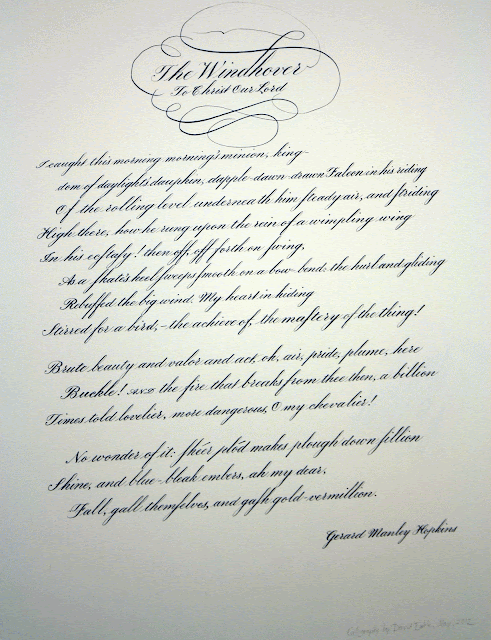 The Windhover
To Christ Our Lord
I caught this morning morning's minion, king-
dom of daylight's dauphin, dapple-dawn-drawn Falcon in his riding
Of the rolling level underneath him ſteady air, and ſtriding
High there, how he rung upon the rein of a wimpling wing
In his ecſtaſy! then off, off forth on ſwing,
As a ſkate's heel ſweeps ſmooth on a bow-bend: the hurl and gliding
Rebuffed the big wind. My heart in hiding
Stirred for a bird,–the achieve of, the maſtery of the thing!
Brute beauty and valor and act, oh, air, pride, plume, here
Buckle! AND the fire that breaks from thee then, a billion
Times told lovelier, more dangerous, O my chevalier!
No wonder of it: ſhéer plód makes plough down ſillion
Shine, and blue-bleak embers, ah my dear,
Fall, gall themſelves, and gaſh gold-vermillion.
Gerard Manley Hopkins